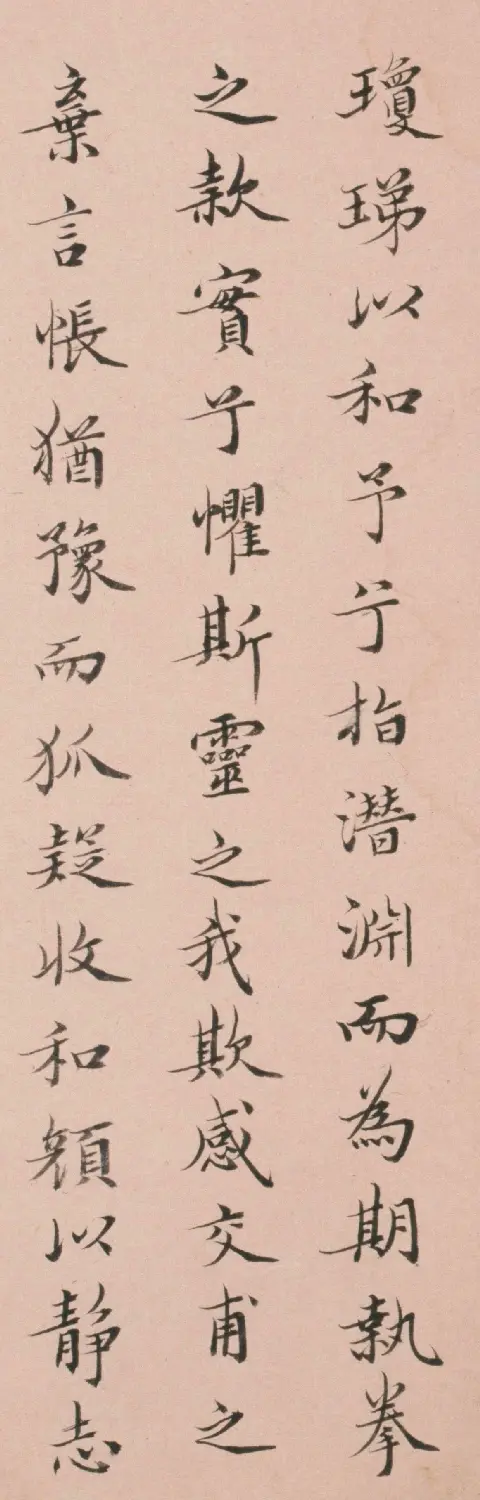 瓊珶以和予兮指潛淵而為期執拳
之款實兮懼斯靈之我欺感交甫之
棄言悵猶豫而狐疑收和顏以静志